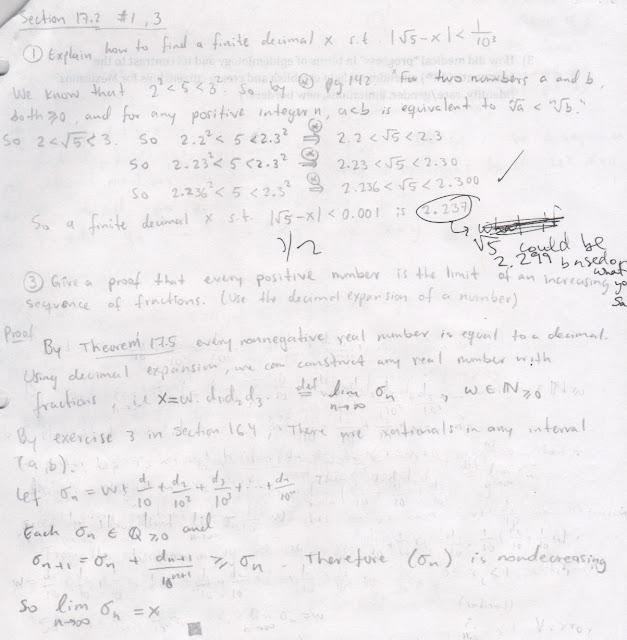 Section 17.2 #1, 3
① Explain how to find a finite decimal x s.t. |√5-x| < 1/10³
We know that 2² < 5 < 3². So by (*) pg. 142 "For two numbers a and b,
both ≥0, and for any positive integer n, a<b is equivalent to ⁿ√a < ⁿ√b."
So 2<√5<3. So 2.2² < 5 < 2.3² (*)⇒ 2.2 < √5 < 2.3
So 2.23² < 5 < 2.3² (*)⇒ 2.23 < √5 < 2.30
So 2.236² < 5 < 2.3² (*)⇒ 2.236 < √5 < 2.300
So a finite decimal x s.t. |√5-x| < 0.001 is 2.237
√5 could be
2.299 based on
what
you
1/2
③ Give a proof that every positive number is the limit of an increasing
sequence of fractions. (Use the decimal expansion of a number)
Proof
By Theorem 17.5 every nonnegative real number is equal to a decimal.
Using decimal expansion, we can construct any real number with
fractions, i.e. x=w.d₁d₂d₃... def= lim n→∞ σn, w ∈ ℕ≥0
By exercise 3 in Section 16.4, There are rationals in any interval
(a,b).
Let σn = w + d₁/10 + d₂/10² + d₃/10³ + ... + dn/10ⁿ
Each σn ∈ ℚ≥0 and
σn+1 = σn + dn+1/10ⁿ⁺¹ ≥ σn. Therefore (σn) is nondecreasing
So lim n→∞ σn = x